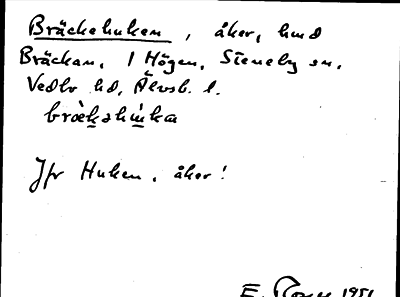 Bräckehuken, åker, hmd
Bräckan, 1 Högen, Steneby sn,
Vedbo hd, Älvsb. l.
bræ̀kəhu̇́ka
Jfr Huken, åker!
E. 1951